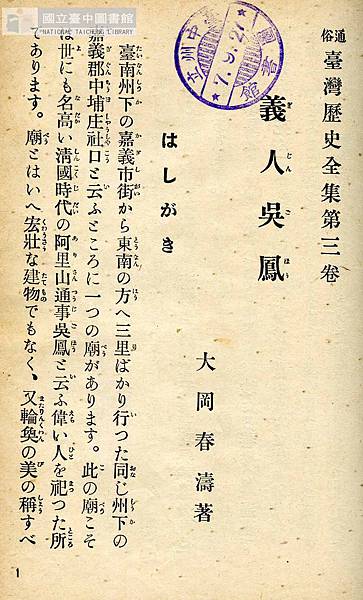 國立臺中圖書館
NATIONAL TAICHUNG LIBRARY
通俗 臺灣歷史全集第三卷
義人吳鳳
大岡春濤著
はしがき
臺南州下の嘉義市街から東南の方へ三里ばかり行つた同じ州下の
嘉義郡中埔庄社口と云ふところに一つの廟があります。此の廟こそ
は世にも名高い淸國時代の阿里山通事吳鳳と云ふ偉い人を祀つた所
であります。廟とはいへ宏壯な建物でもなく、又輪奐の美の稱すべ
1